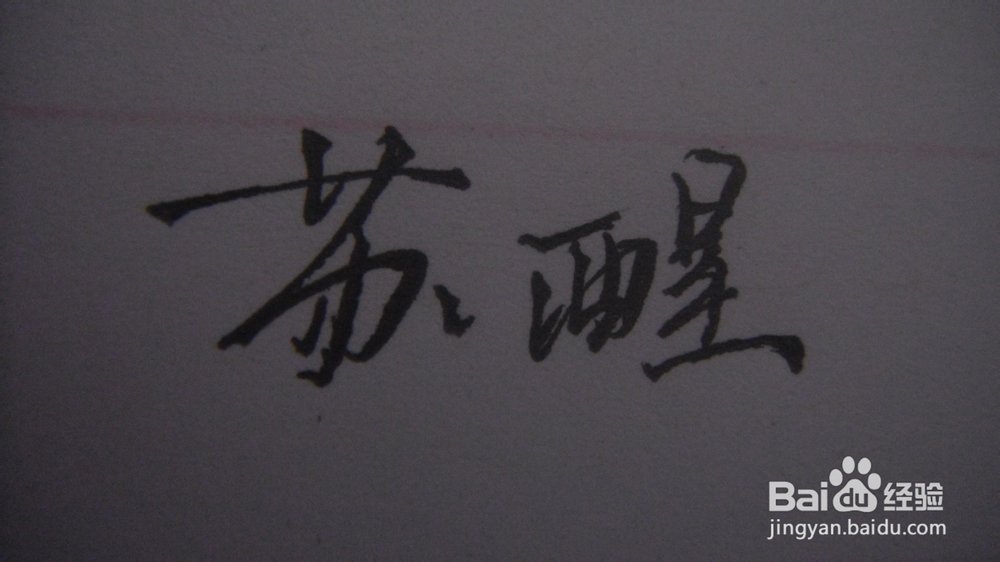 苏醒
Bai du 经验
jingyan.baidu.com